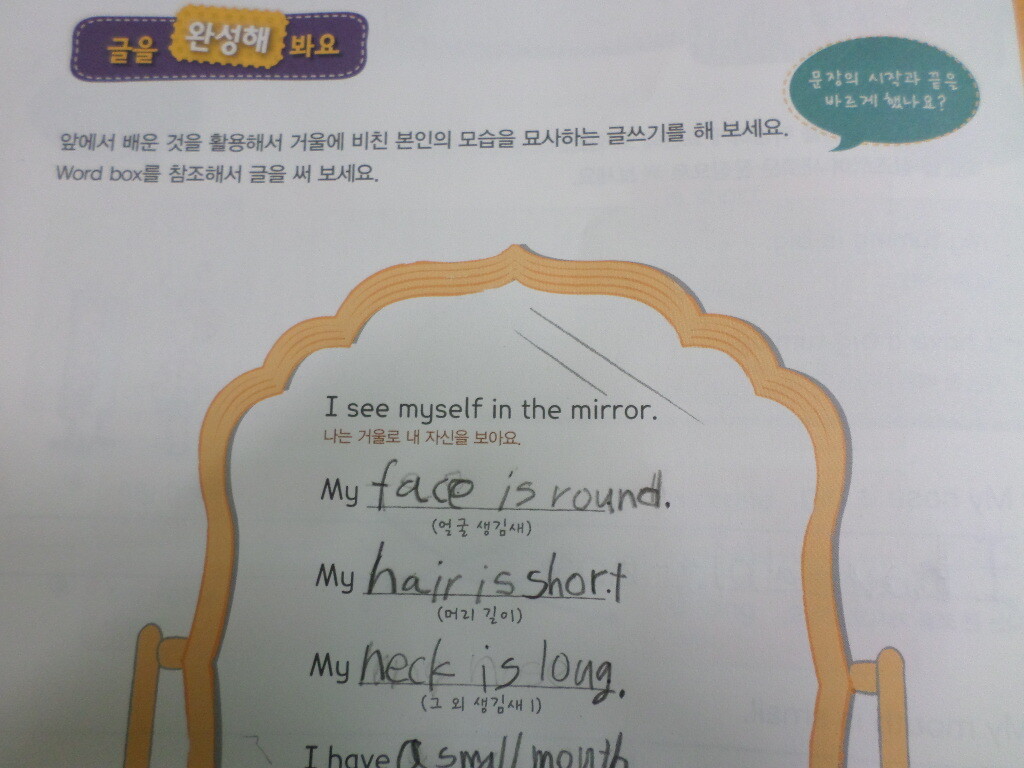 글을 완성해 봐요
문장의 시작과 끝은
바르게 했나요?
앞에서 배운 것을 활용해서 거울에 비친 본인의 모습을 묘사하는 글쓰기를 해 보세요.
Word box를 참조해서 글을 써 보세요.
I see myself in the mirror.
나는 거울로 내 자신을 보아요.
My face is round.
(얼굴 생김새)
My hair is short
(머리 길이)
My neck is long.
(그 외 생김새 1)
I have a small mouth